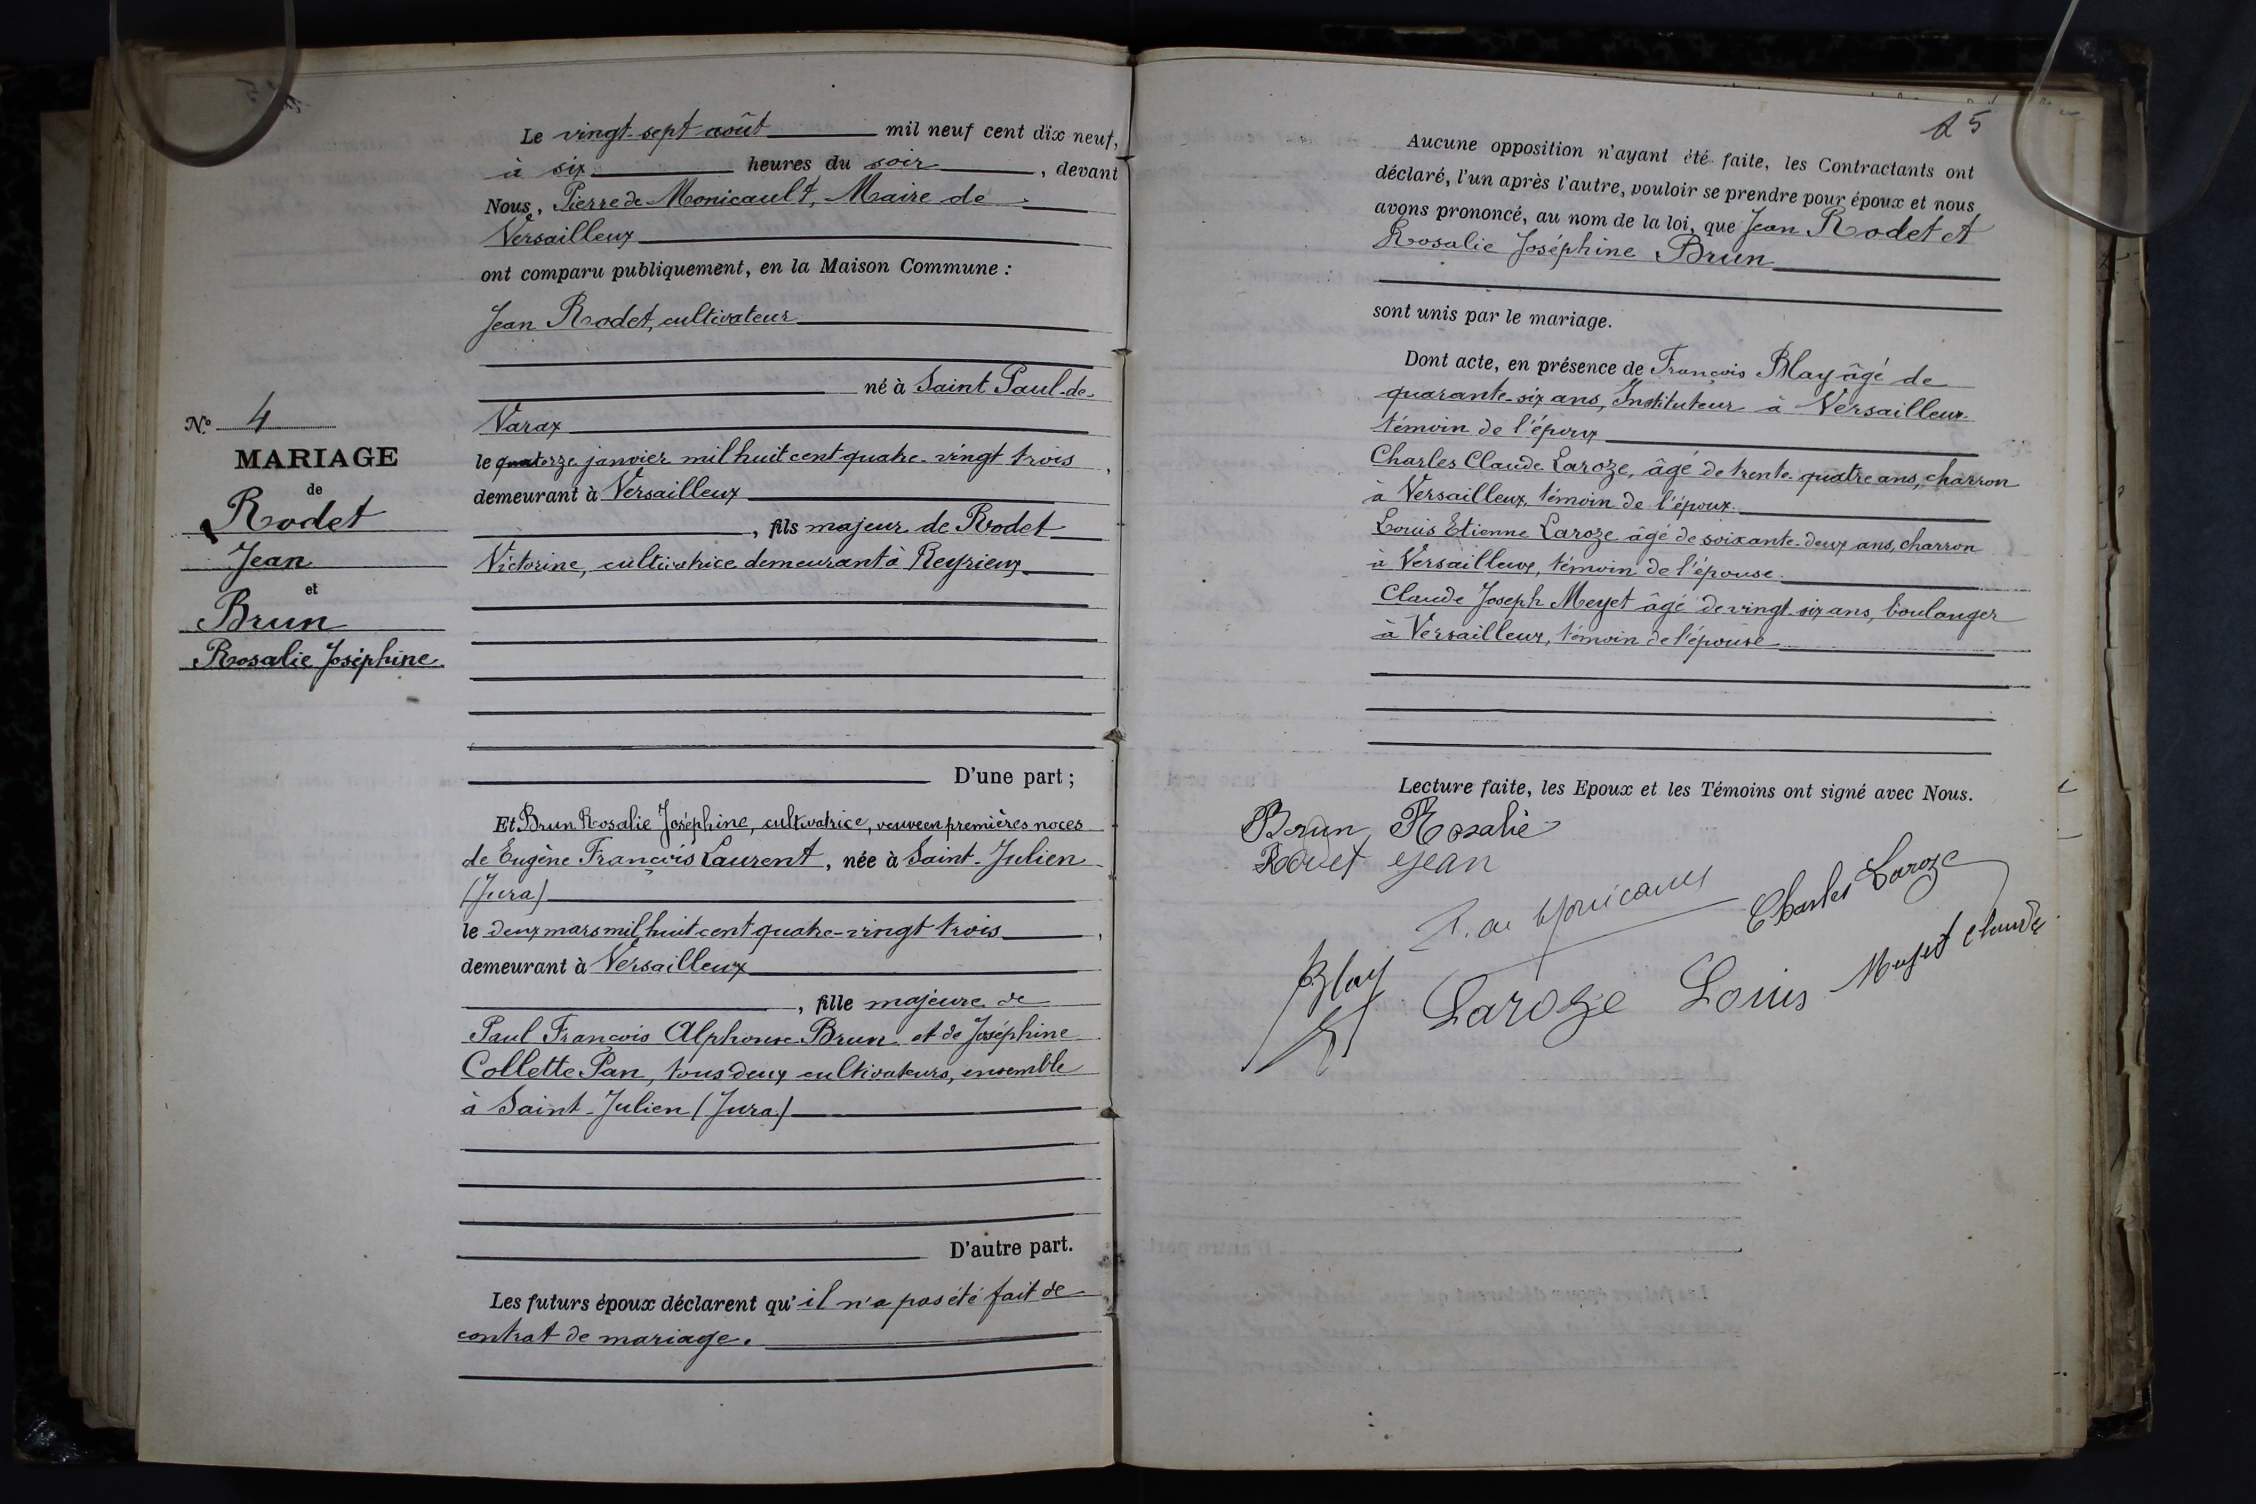 Le vingt-sept août mil neuf cent dix neuf,
à six heures du soir, devant
Nous, Pierre de Monicault, Maire de
Versailleux
ont comparu publiquement, en la Maison Commune :
Jean Rodet, cultivateur
né à Saint Paul-de-
Varax
le quatorze janvier mil huit cent quatre-vingt trois,
demeurant à Versailleux
, fils majeur de Rodet
Victorine, cultivatrice demeurant à Reyrieux
D'une part ;
N° 4
MARIAGE
de
Rodet
Jean
et
Brun
Rosalie Joséphine
Et Brun Rosalie Joséphine, cultivatrice, veuve en premières noces
de Eugène François Laurent, née à Saint-Julien
(Jura)
le deux mars mil huit cent quatre-vingt trois,
demeurant à Versailleux
, fille majeure de
Paul François Alphonse Brun et de Joséphine
Collette Pan, tous deux cultivateurs, ensemble
à Saint-Julien (Jura)
D'autre part.
Les futurs époux déclarent qu'il n'a pas été fait de
contrat de mariage.
25
Aucune opposition n'ayant été faite, les Contractants ont
déclaré, l'un après l'autre, vouloir se prendre pour époux et nous
avons prononcé, au nom de la loi, que Jean Rodet et
Rosalie Joséphine Brun
sont unis par le mariage.
Dont acte, en présence de François Blay âgé de
quarante-six ans, Instituteur à Versailleux
témoin de l'époux
Charles Claude Laroze, âgé de trente-quatre ans, charron
à Versailleux, témoin de l'époux
Louis Etienne Laroze âgé de soixante-deux ans, charron
à Versailleux, témoin de l'épouse
Claude Joseph Meyet âgé de vingt-six ans, boulanger
à Versailleux, témoin de l'épouse
Lecture faite, les Epoux et les Témoins ont signé avec Nous.
Brun Rosalie
Rodet Jean
P. de Monicault
Charles Laroze
Blay
Laroze Louis
Meyet Claude